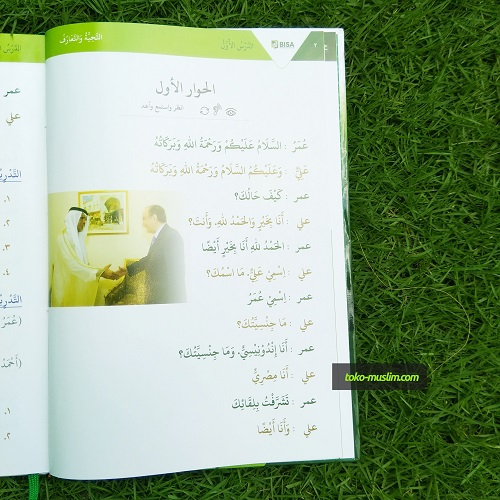 التَّحِيَّةُ وَالتَّعَارُفُ
الدَّرْسُ الأَوَّلُ
BISA
٢
الحوار الأول
انظر واستمع وأعد
عُمَرُ : السَّلَامُ عَلَيْكُمْ وَرَحْمَةُ اللهِ وَبَرَكَاتُهُ
عَلِيٌّ : وَعَلَيْكُمُ السَّلَامُ وَرَحْمَةُ اللهِ وَبَرَكَاتُهُ
عمر : كَيْفَ حَالُكَ؟
علي : أَنَا بِخَيْرٍ وَالحَمْدُ للهِ، وَأَنتَ؟
عمر : الحَمْدُ للهِ أَنَا بِخَيْرٍ أَيْضًا
علي : اِسْمِيْ عَلِيٌّ، مَا اسْمُكَ؟
عمر : اِسْمِيْ عُمَرُ
علي : مَا جِنْسِيَّتُكَ؟
عمر : أَنَا إِنْدُوْنِيْسِيٌّ، وَمَا جِنْسِيَّتُكَ؟
علي : أَنَا مِصْرِيٌّ
عمر : تَشَرَّفْتُ بِلِقَائِكَ
علي : وَأَنَا أَيْضًا
toko-muslim.com
عمر
علي
١.
٢.
٣.
٤.
(عُمَرُ
(أَحْمَدُ
١.
٢.